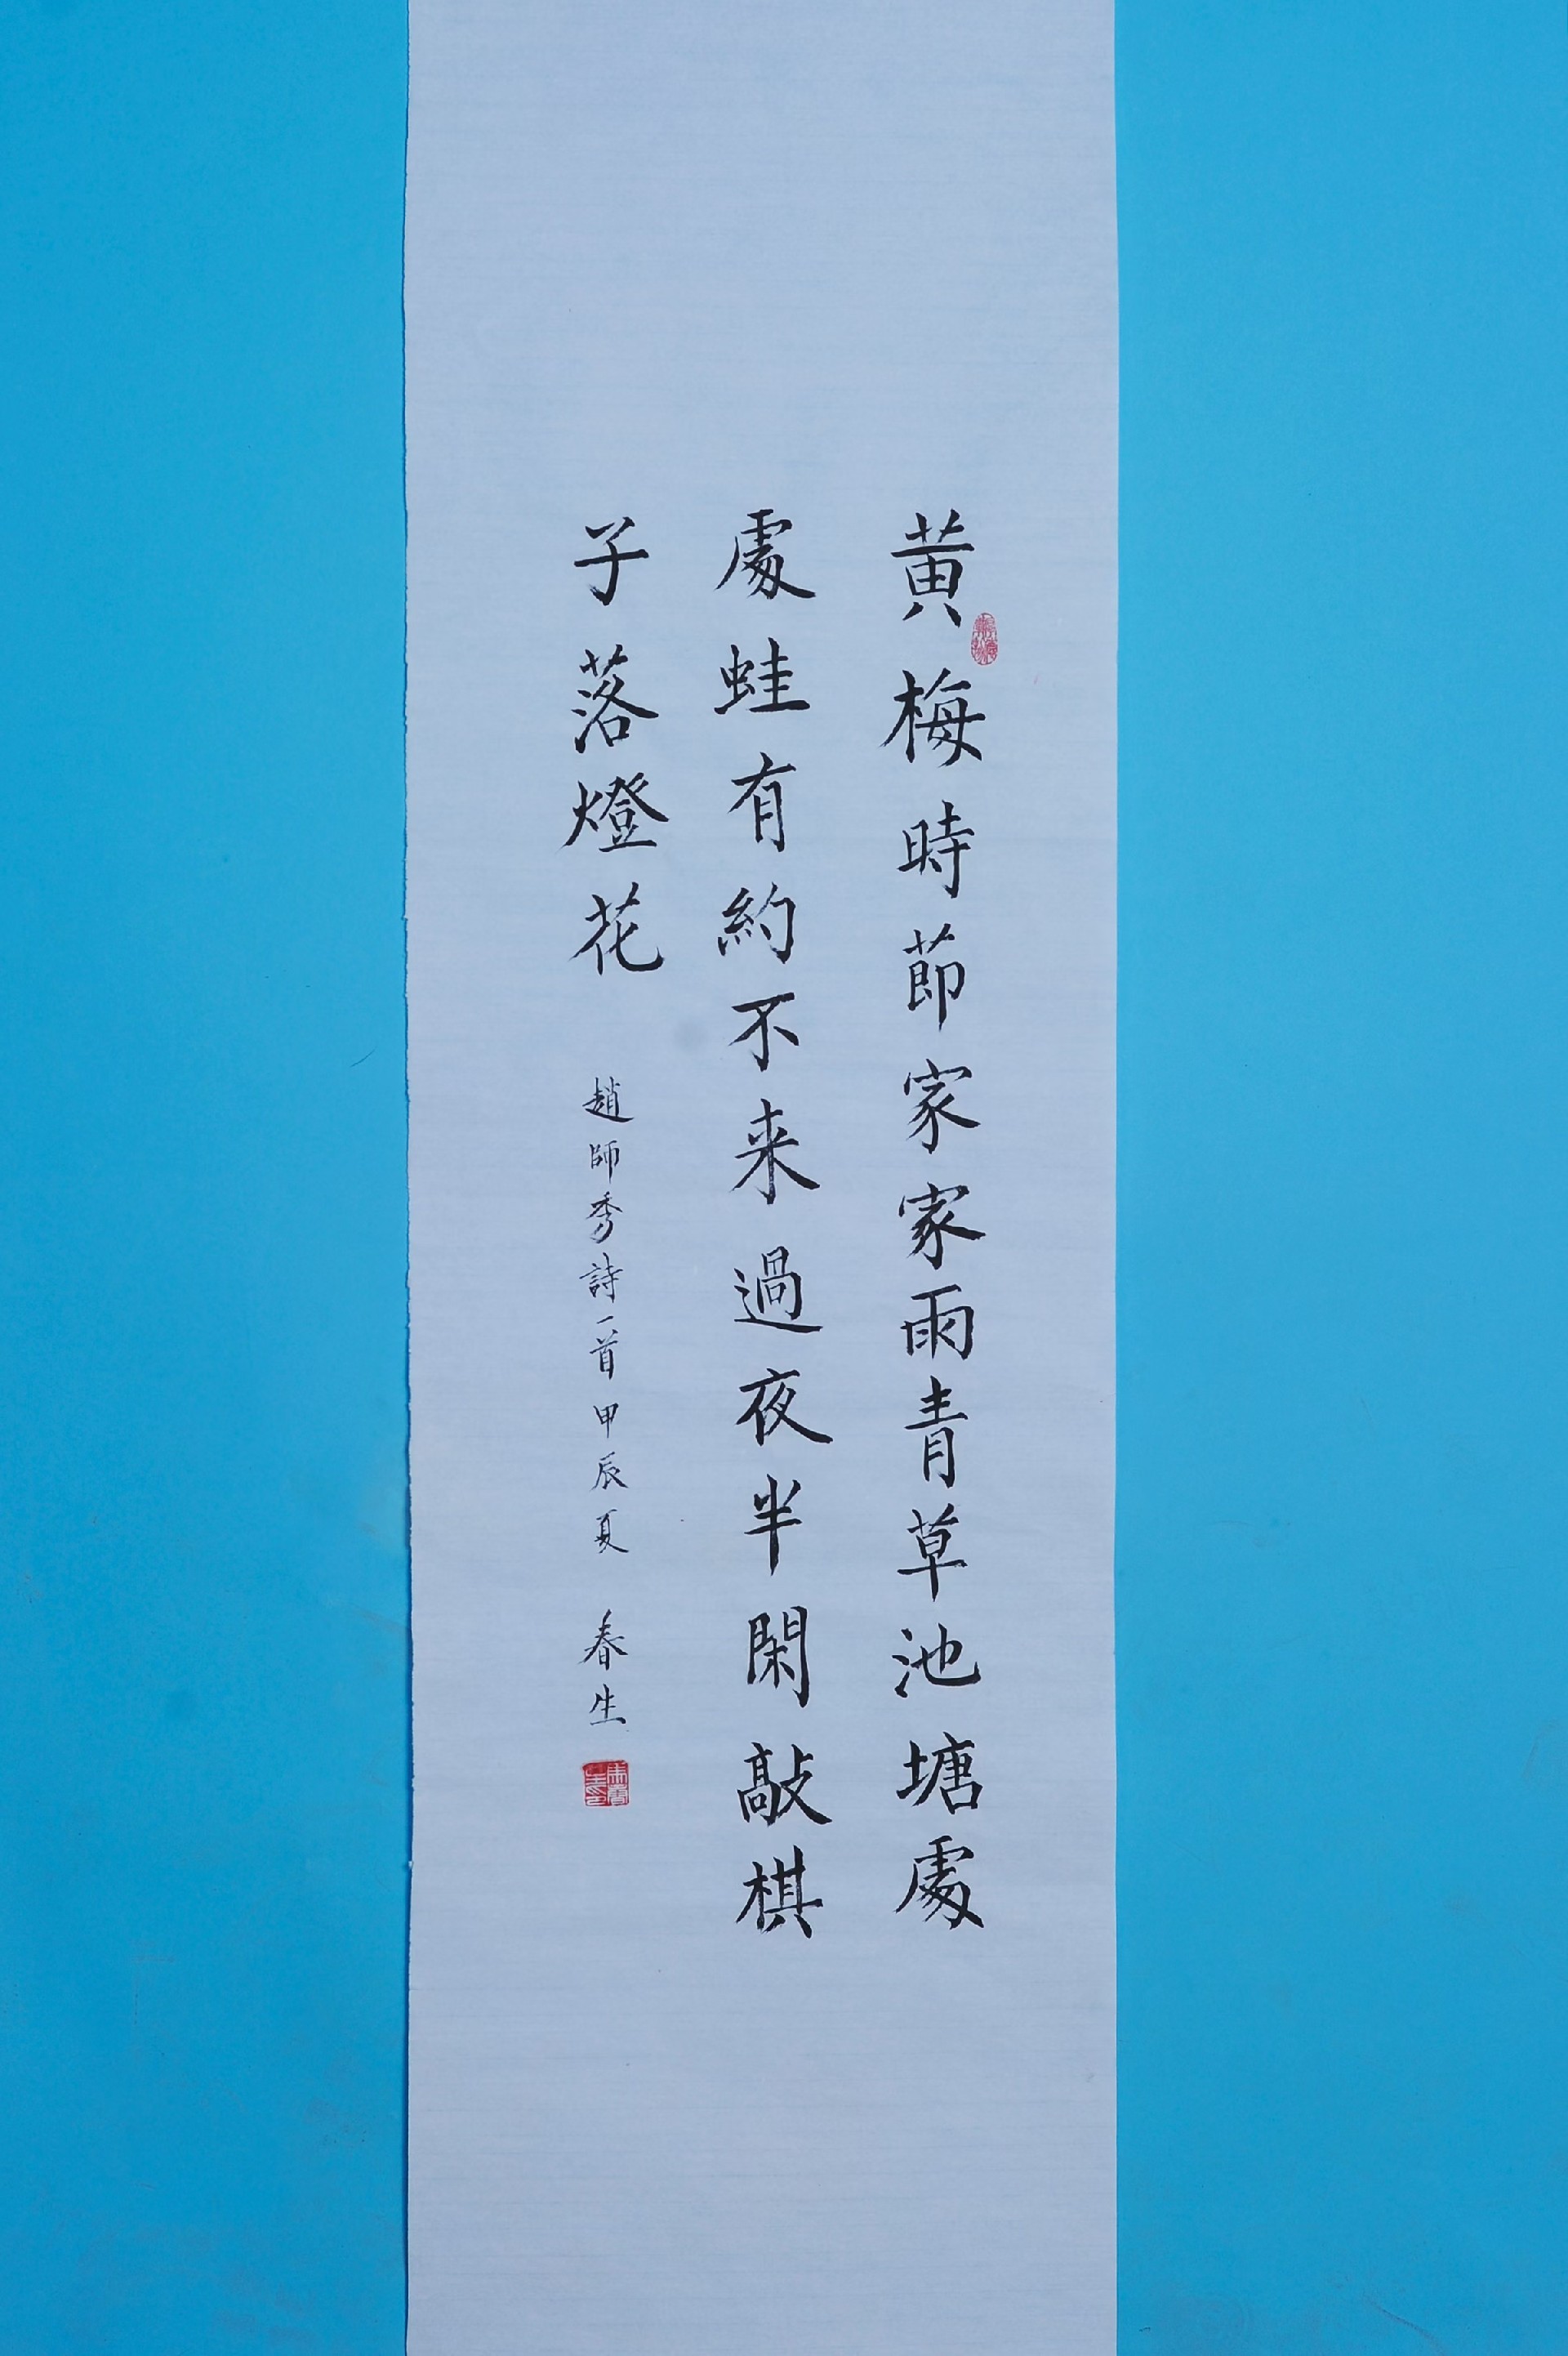 黄梅時節家家雨青草池塘處
處蛙有約不来過夜半閑敲棋
子落燈花
趙師秀詩一首甲辰夏 春生